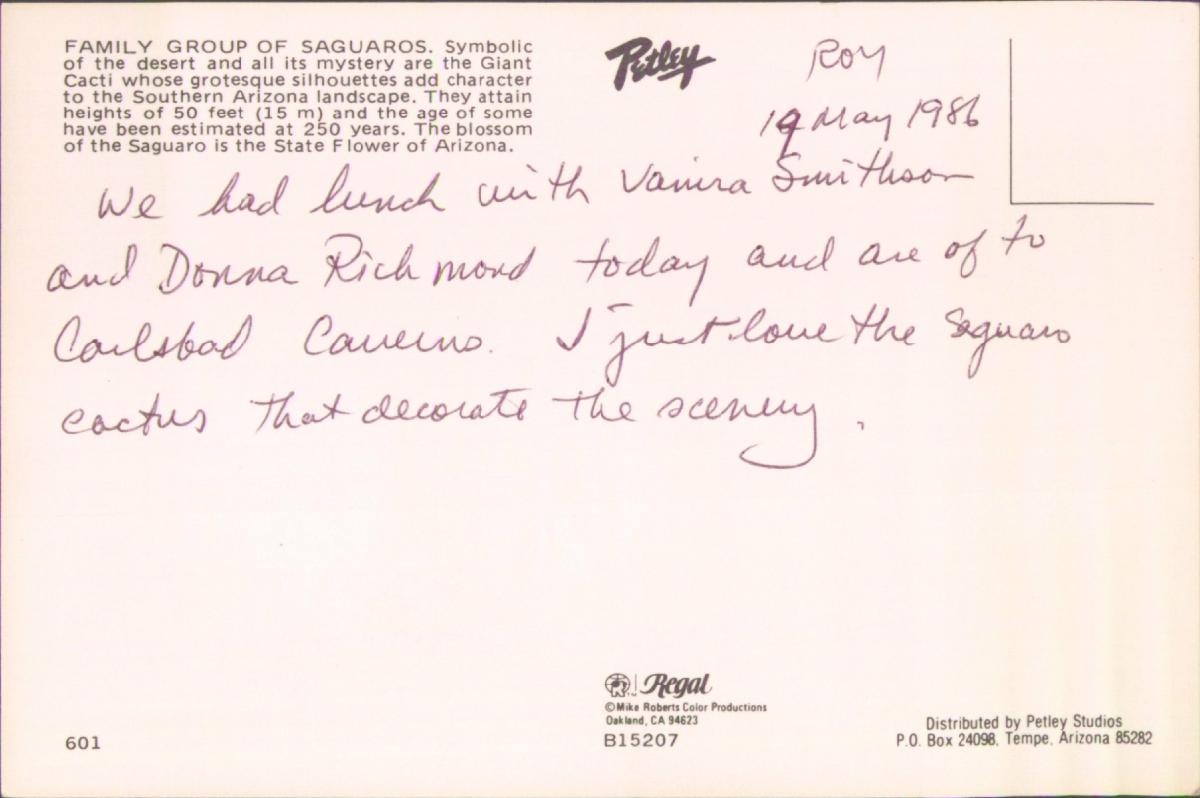 FAMILY GROUP OF SAGUAROS. Symbolic
of the desert and all its mystery are the Giant
Cacti whose grotesque silhouettes add character
to the Southern Arizona landscape. They attain
heights of 50 feet (15 m) and the age of some
have been estimated at 250 years. The blossom
of the Saguaro is the State Flower of Arizona.
Petley
Roy
19 May 1986
We had lunch with Smithson
and Donna Richmond today and are of to
Carlsbad Caverns. I just love the Saguaro
cactus that decorate the scenery.
Regal
©Mike Roberts Color Productions
Oakland, CA 94623
B15207
601
Distributed by Petley Studios
P.O. Box 24098, Tempe, Arizona 85282